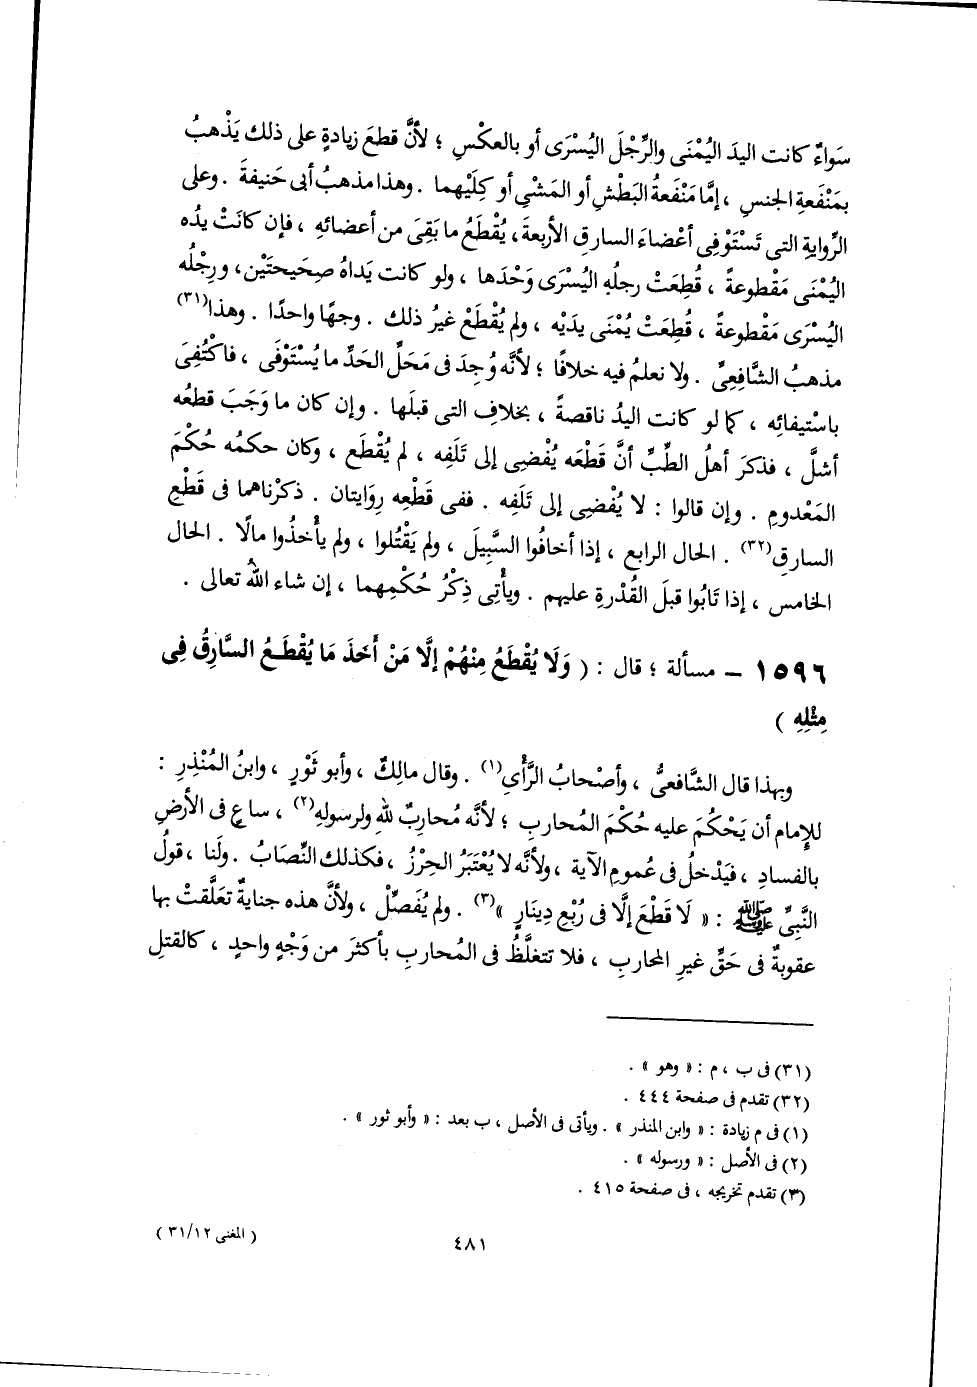 سَواءٌ كانت اليدَ اليُمْنَى والرِّجْلَ اليُسْرَى أو بالعكْسِ ؛ لأنَّ قطعَ زيادةٍ على ذلك يَذْهبُ
بمَنْفَعةِ الجنسِ ، إمَّا مَنْفَعةُ البَطْشِ أو المَشْىِ أو كِلَيْهما . وهذا مذهبُ أبى حَنيفةَ . وعلى
الرِّوايةِ التى تَسْتَوْفِى أعْضاءَ السارقِ الأربعةَ ، يُقْطَعُ ما بَقِىَ من أعضائهِ ، فإن كانَتْ يدُه
اليُمْنَى مَقْطوعةً ، قُطِعَتْ رجلُه اليُسْرَى وَحْدَها ، ولو كانت يَداهُ صَحِيحتَيْن ، ورِجْلُه
اليُسْرَى مَقْطوعةً ، قُطِعَتْ يُمْنَى يدَيْه ، ولم يُقْطَعْ غيرُ ذلك . وجهًا واحدًا . وهذا(٣١)
مذهبُ الشَّافِعِىِّ . ولا نعلمُ فيه خلافًا ؛ لأنَّه وُجِدَ فى مَحَلِّ الحَدِّ ما يُسْتَوْفَى ، فاكْتُفِىَ
باسْتيفائِه ، كما لو كانت اليدُ ناقصةً ، بخلافِ التى قبلَها . وإن كان ما وَجَبَ قطعُه
أشلَّ ، فذكرَ أهلُ الطِّبِّ أنَّ قَطْعَه يُفْضِى إلى تَلَفِه ، لم يُقْطَع ، وكان حكمُه حُكْمَ
المَعْدومِ . وإن قالوا : لا يُفْضِى إلى تَلَفِه . ففى قَطْعِه رِوَايتان . ذكرْناهما فى قَطْعِ
السارقِ(٣٢) . الحال الرابع ، إذا أخافُوا السَّبِيلَ ، ولم يَقْتُلوا ، ولم يأْخذُوا مالًا . الحال
الخامس ، إذا تَابُوا قبلَ القُدْرةِ عليهم . ويأْتِى ذِكْرُ حُكْمِهما ، إن شاء اللهُ تعالى .
١٥٩٦ – مسألة ؛ قال : ( وَلَا يُقْطَعُ مِنْهُمْ إلَّا مَنْ أَخَذَ مَا يُقْطَعُ السَّارِقُ فِى
مِثْلِهِ )
وبهذا قال الشَّافعىُّ ، وأصْحابُ الرَّأْىِ(١) . وقال مالِكٌ ، وأبو ثَوْرٍ ، وابنُ المُنْذِرِ :
للإِمام أن يَحْكُمَ عليه حُكْمَ المُحاربِ ؛ لأنَّه مُحارِبٌ للهِ ولرسولهِ(٢) ، ساعٍ فى الأرضِ
بالفسادِ ، فيَدْخلُ فى عُمومِ الآية ، ولأنَّه لا يُعْتَبَرُ الحِرْزُ ، فكذلك النِّصَابُ . ولَنا ، قولُ
النَّبِىِّ ﷺ : « لَا قَطْعَ إلَّا فى رُبْعِ دِينَارٍ »(٣) . ولم يُفَصِّلْ ، ولأنَّ هذه جنايةٌ تعَلَّقتْ بها
عقوبةٌ فى حَقِّ غيرِ المحاربِ ، فلا تتغلَّظُ فى المُحاربِ بأكثرَ من وَجْهٍ واحدٍ ، كالقتلِ
(٣١) فى ب ، م : « وهو » .
(٣٢) تقدم فى صفحة ٤٤٤ .
(١) فى م زيادة : « وابن المنذر » . ويأتى فى الأصل ، ب بعد : « وأبو ثور » .
(٢) فى الأصل : « ورسوله » .
(٣) تقدم تخريجه ، فى صفحة ٤١٥ .
٤٨١
( المغنى ٣١/١٢ )